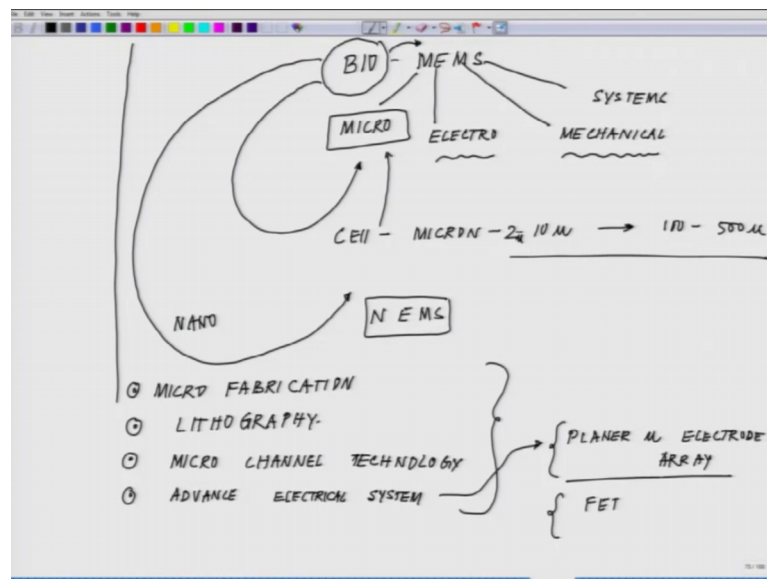 File Edit View Insert Actions Tools Help
BIO - MEMS
SYSTEMS
MICRO ELECTRO MECHANICAL
CELL - MICRON - 2 10 μ → 100 - 500 μ
NANO NEMS
MICRO FABRICATION
LITHOGRAPHY.
MICRO CHANNEL TECHNOLOGY
ADVANCE ELECTRICAL SYSTEM
PLANER μ ELECTRODE
ARRAY
FET